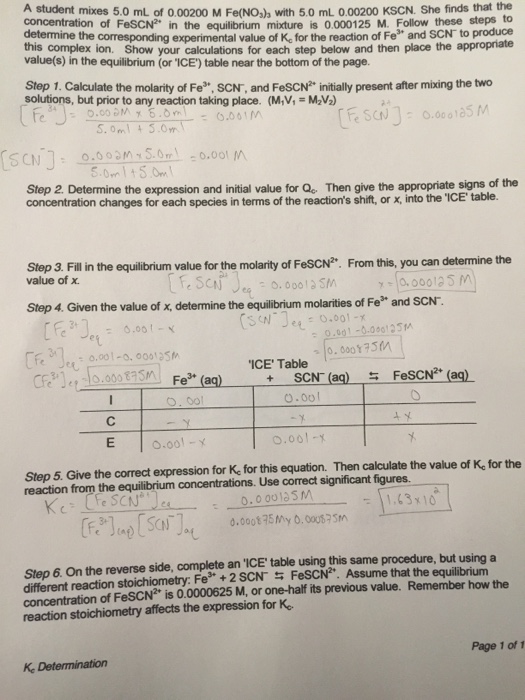 A student mixes 5.0 mL of 0.00200 M Fe(NO₃)₃ with 5.0 mL 0.00200 KSCN. She finds that the
concentration of FeSCN²⁺ in the equilibrium mixture is 0.000125 M. Follow these steps to
determine the corresponding experimental value of K꜀ for the reaction of Fe³⁺ and SCN⁻ to produce
this complex ion. Show your calculations for each step below and then place the appropriate
value(s) in the equilibrium (or 'ICE') table near the bottom of the page.
Step 1. Calculate the molarity of Fe³⁺, SCN⁻, and FeSCN²⁺ initially present after mixing the two
solutions, but prior to any reaction taking place. (M₁V₁ = M₂V₂)
[Fe³⁺] = 0.002M × 5.0ml / 5.0ml + 5.0ml = 0.001M
[FeSCN]²⁺ = 0.000125 M
[SCN⁻] = 0.002M × 5.0ml / 5.0ml + 5.0ml = 0.001 M
Step 2. Determine the expression and initial value for Q꜀. Then give the appropriate signs of the
concentration changes for each species in terms of the reaction's shift, or x, into the 'ICE' table.
Step 3. Fill in the equilibrium value for the molarity of FeSCN²⁺. From this, you can determine the
value of x. [FeSCN²⁺]eq = 0.000125M x = 0.000125 M
Step 4. Given the value of x, determine the equilibrium molarities of Fe³⁺ and SCN⁻.
[Fe³⁺]eq = 0.001 - x [SCN⁻]eq = 0.001 - x
= 0.001 - 0.000125M
[Fe³⁺]eq = 0.001 - 0.000125M = 0.000875M
[Fe³⁺]eq = 0.000875M
'ICE' Table
Fe³⁺ (aq) + SCN⁻ (aq) ⇆ FeSCN²⁺ (aq)
I 0.001 0.001 0
C - x - x + x
E 0.001 - x 0.001 - x x
Step 5. Give the correct expression for K꜀ for this equation. Then calculate the value of K꜀ for the
reaction from the equilibrium concentrations. Use correct significant figures.
Kc = [FeSCN²⁺]eq / [Fe³⁺](aq) [SCN⁻]aq = 0.000125M / 0.000875M × 0.000875M = 1.63×10²
Step 6. On the reverse side, complete an 'ICE' table using this same procedure, but using a
different reaction stoichiometry: Fe³⁺ + 2 SCN⁻ ⇆ FeSCN²⁺. Assume that the equilibrium
concentration of FeSCN²⁺ is 0.0000625 M, or one-half its previous value. Remember how the
reaction stoichiometry affects the expression for K꜀.
Page 1 of 1
K꜀ Determination